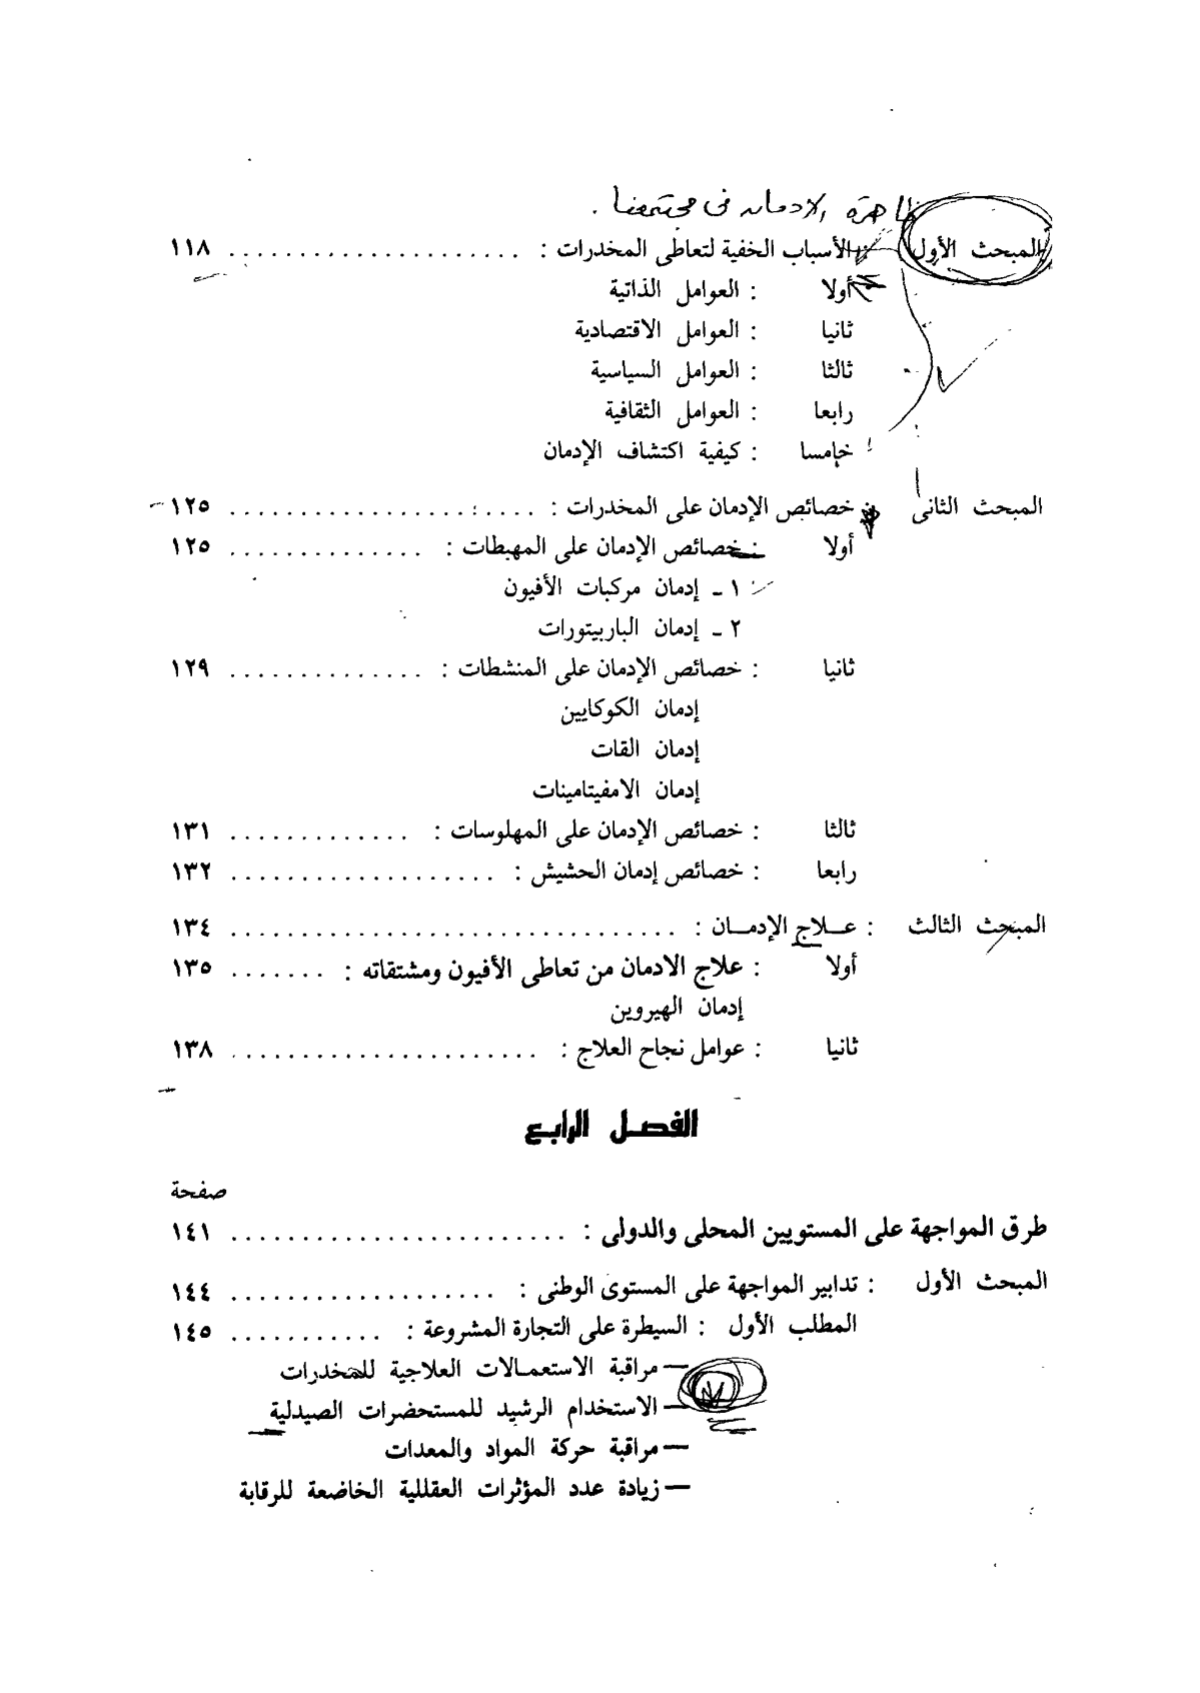 ظاهرة الادمان فى مجتمعنا .
المبحث الأول : الأسباب الخفية لتعاطى المخدرات : . . . . . . . . . . . . . . . . . . . . . ١١٨
أولا : العوامل الذاتية
ثانيا : العوامل الاقتصادية
ثالثا : العوامل السياسية
رابعا : العوامل الثقافية
خامسا : كيفية اكتشاف الإدمان
المبحث الثانى : خصائص الإدمان على المخدرات : . . . . . . . . . . . . . . . . . . . . . . ١٢٥
أولا : خصائص الإدمان على المهبطات : . . . . . . . . . . . . . . ١٢٥
١ ـ إدمان مركبات الأفيون
٢ ـ إدمان الباربيتورات
ثانيا : خصائص الإدمان على المنشطات : . . . . . . . . . . . . . . ١٢٩
إدمان الكوكايين
إدمان القات
إدمان الامفيتامينات
ثالثا : خصائص الإدمان على المهلوسات : . . . . . . . . . . . . . ١٣١
رابعا : خصائص إدمان الحشيش : . . . . . . . . . . . . . . . . . . . ١٣٢
المبحث الثالث : عـــلاج الإدمــان : . . . . . . . . . . . . . . . . . . . . . . . . . . . . . . . . ١٣٤
أولا : علاج الادمان من تعاطى الأفيون ومشتقاته : . . . . . . . ١٣٥
إدمان الهيروين
ثانيا : عوامل نجاح العلاج : . . . . . . . . . . . . . . . . . . . . . . ١٣٨
الفصل الرابع
صفحة
طرق المواجهة على المستويين المحلى والدولى : . . . . . . . . . . . . . . . . . . . . . . . . ١٤١
المبحث الأول : تدابير المواجهة على المستوى الوطنى : . . . . . . . . . . . . . . . . . . . ١٤٤
المطلب الأول : السيطرة على التجارة المشروعة : . . . . . . . . . . . ١٤٥
— مراقبة الاستعمـالات العلاجية للمخدرات
— الاستخدام الرشيد للمستحضرات الصيدلية
— مراقبة حركة المواد والمعدات
— زيادة عدد المؤثرات العقللية الخاضعة للرقابة